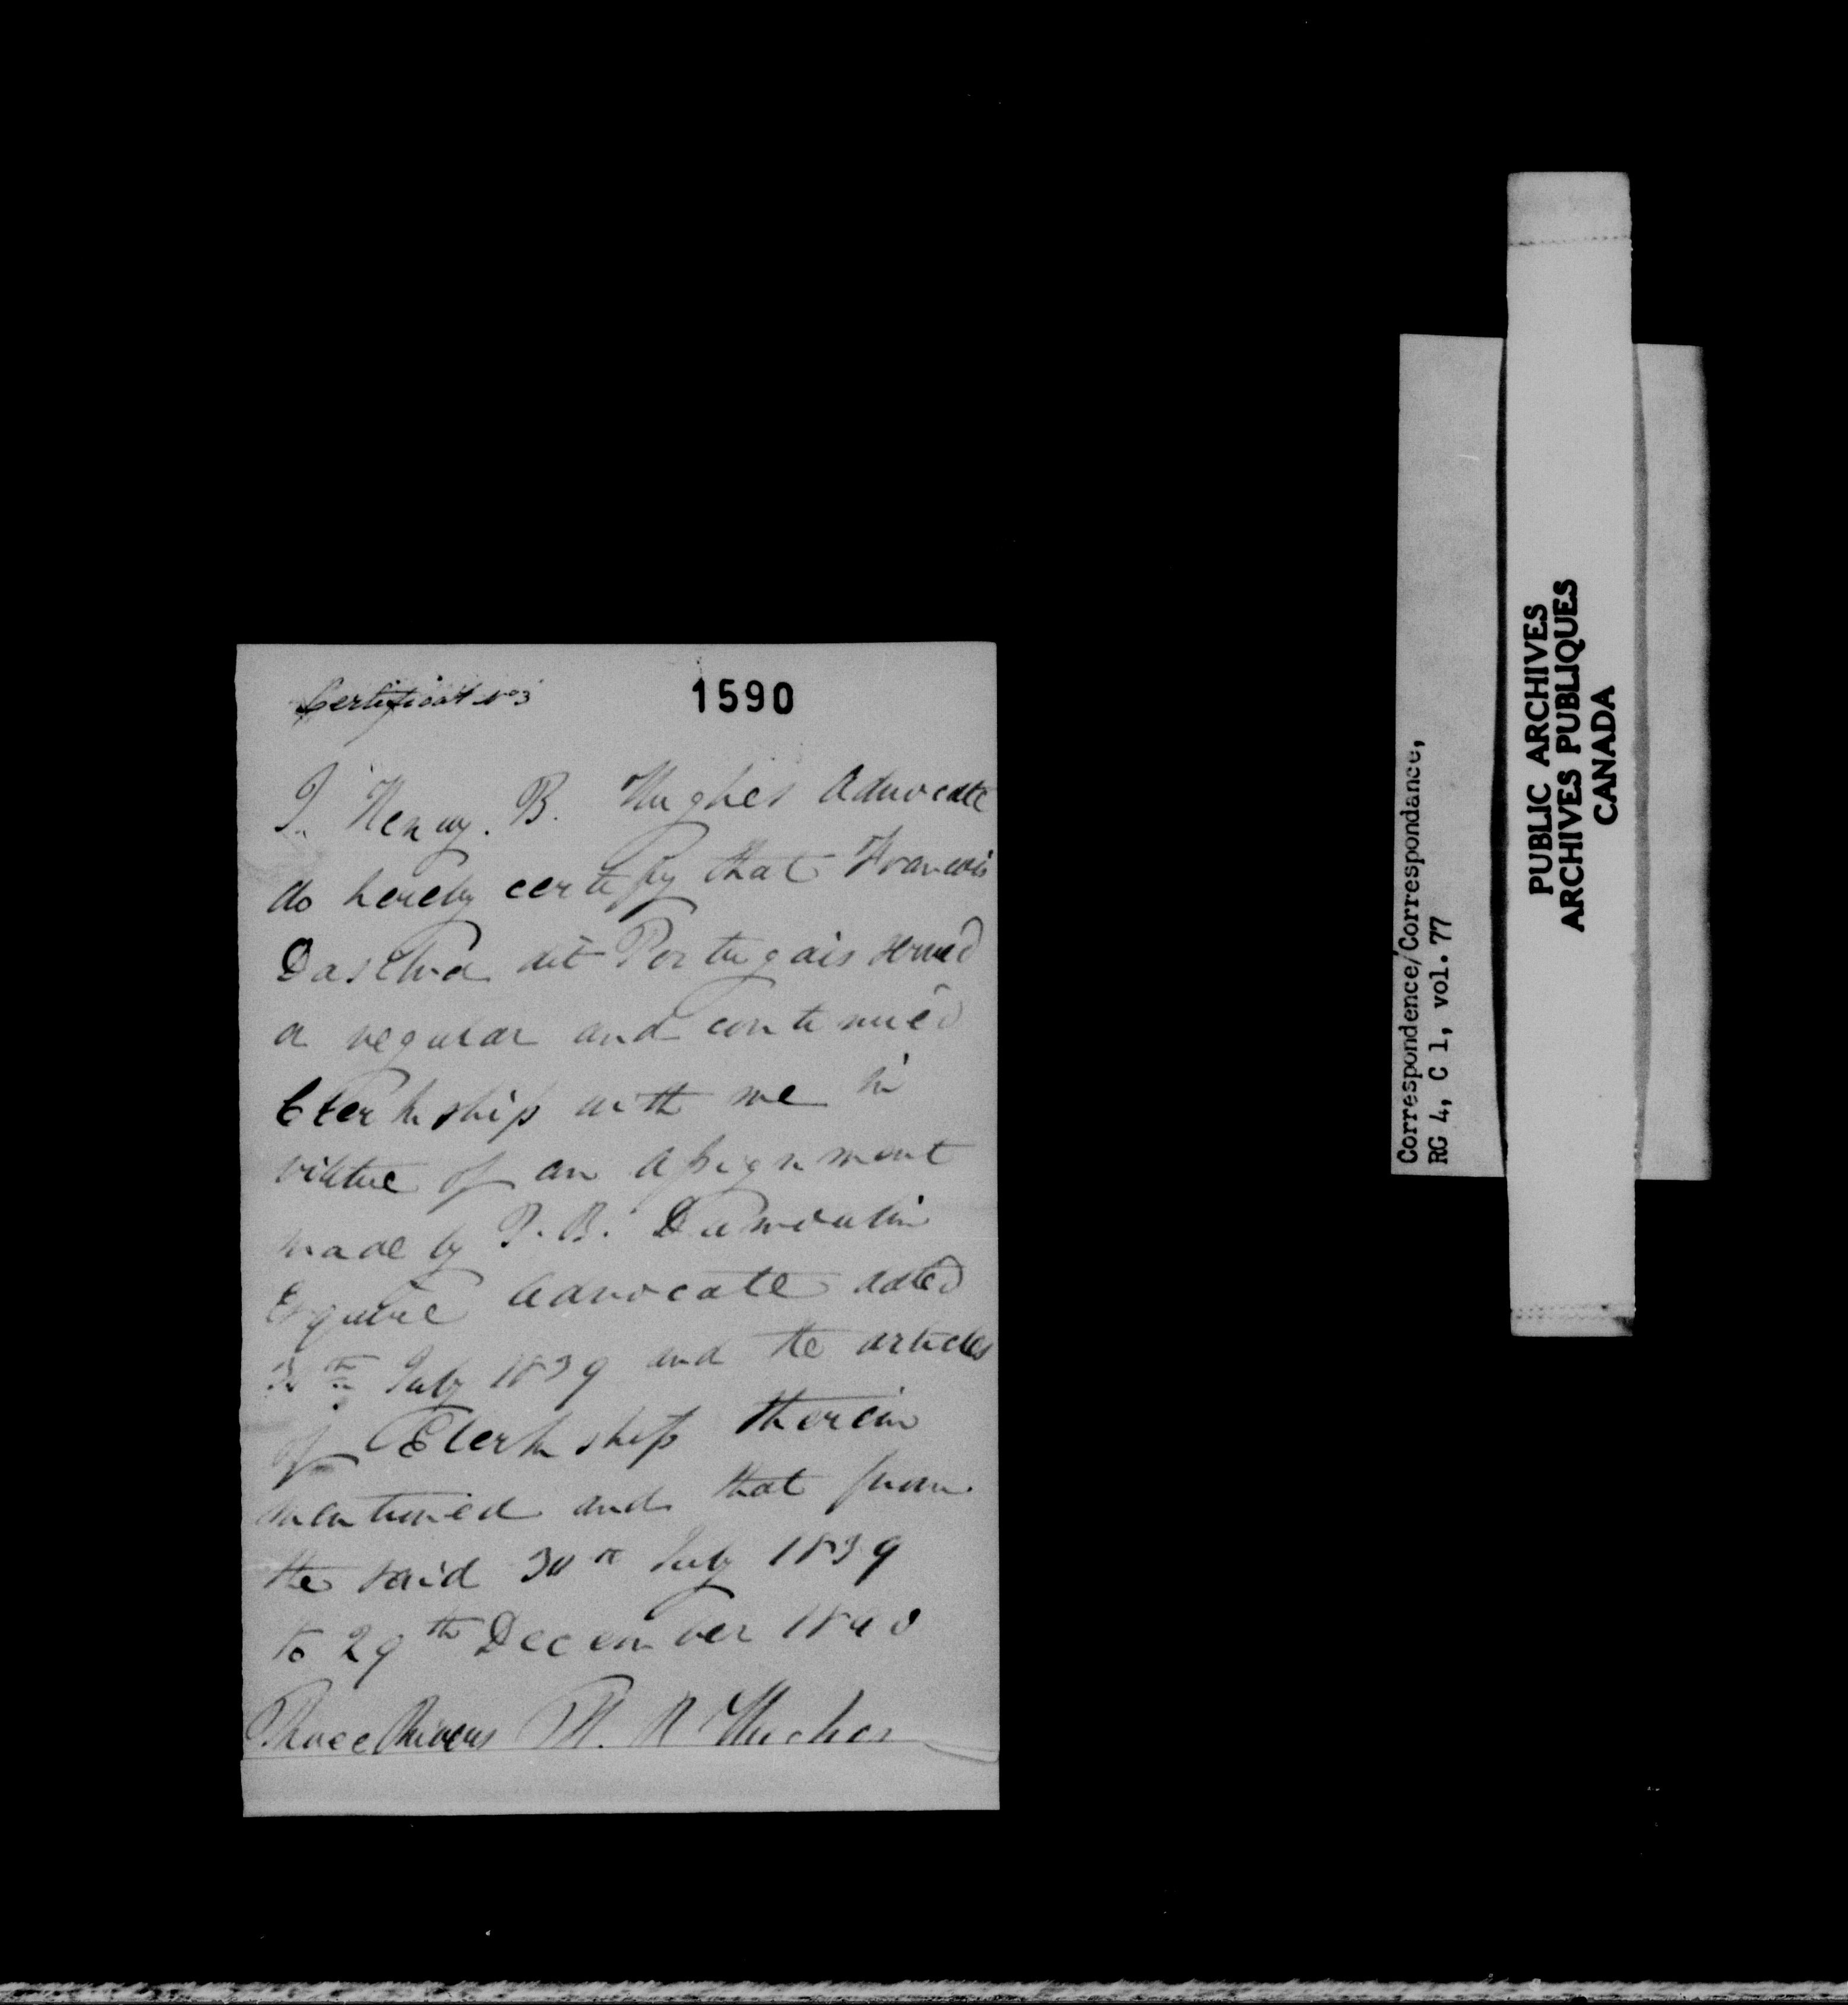 Certificat No 3
1590
I. Henry. B. Hughes Advocate
do hereby certify that Francois
Daselva dit Portugais served
a regular and continued
Clerkship with me in
virtue of an assignment
made by P. B. Dumoulin
Esquire Advocate dated
30th July 1839 and the articles
of Clerkship therein
mentioned and that from
the said 30th July 1839
to 29th December 1840
Three Rivers H. B Hughes
Correspondence/Correspondance,
RG 4, C 1, vol. 77
PUBLIC ARCHIVES
ARCHIVES PUBLIQUES
CANADA